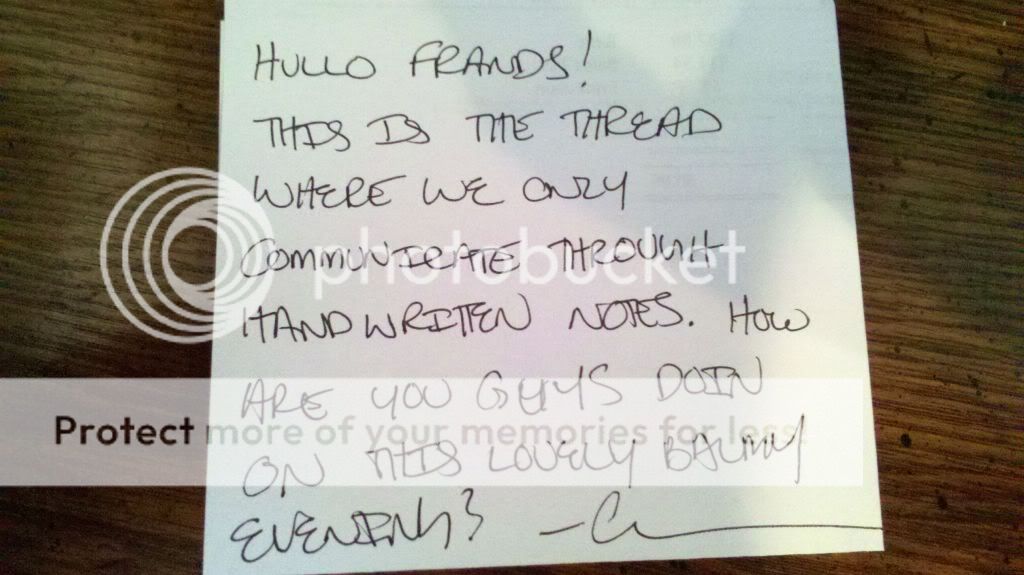 HULLO FRANDS!
THIS IS THE THREAD
WHERE WE ONLY
COMMUNICATE THROUGH
photobucket
HANDWRITTEN NOTES. HOW
ARE YOU GUYS DOIN
Protect more of your memories for less!
ON THIS LOVELY BALMY
EVENING? —